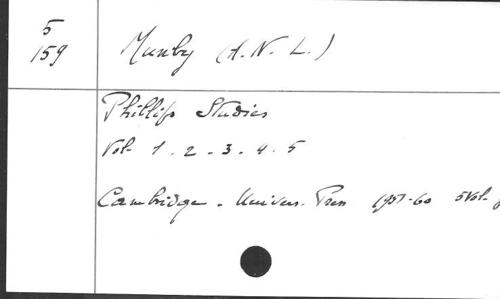 5
159
Munby (A. N. L.)
Phillips Studies
Vol. 1 . 2 . 3 . 4 . 5
Cambridge . Univers. Press 1951-60 5 Vol.